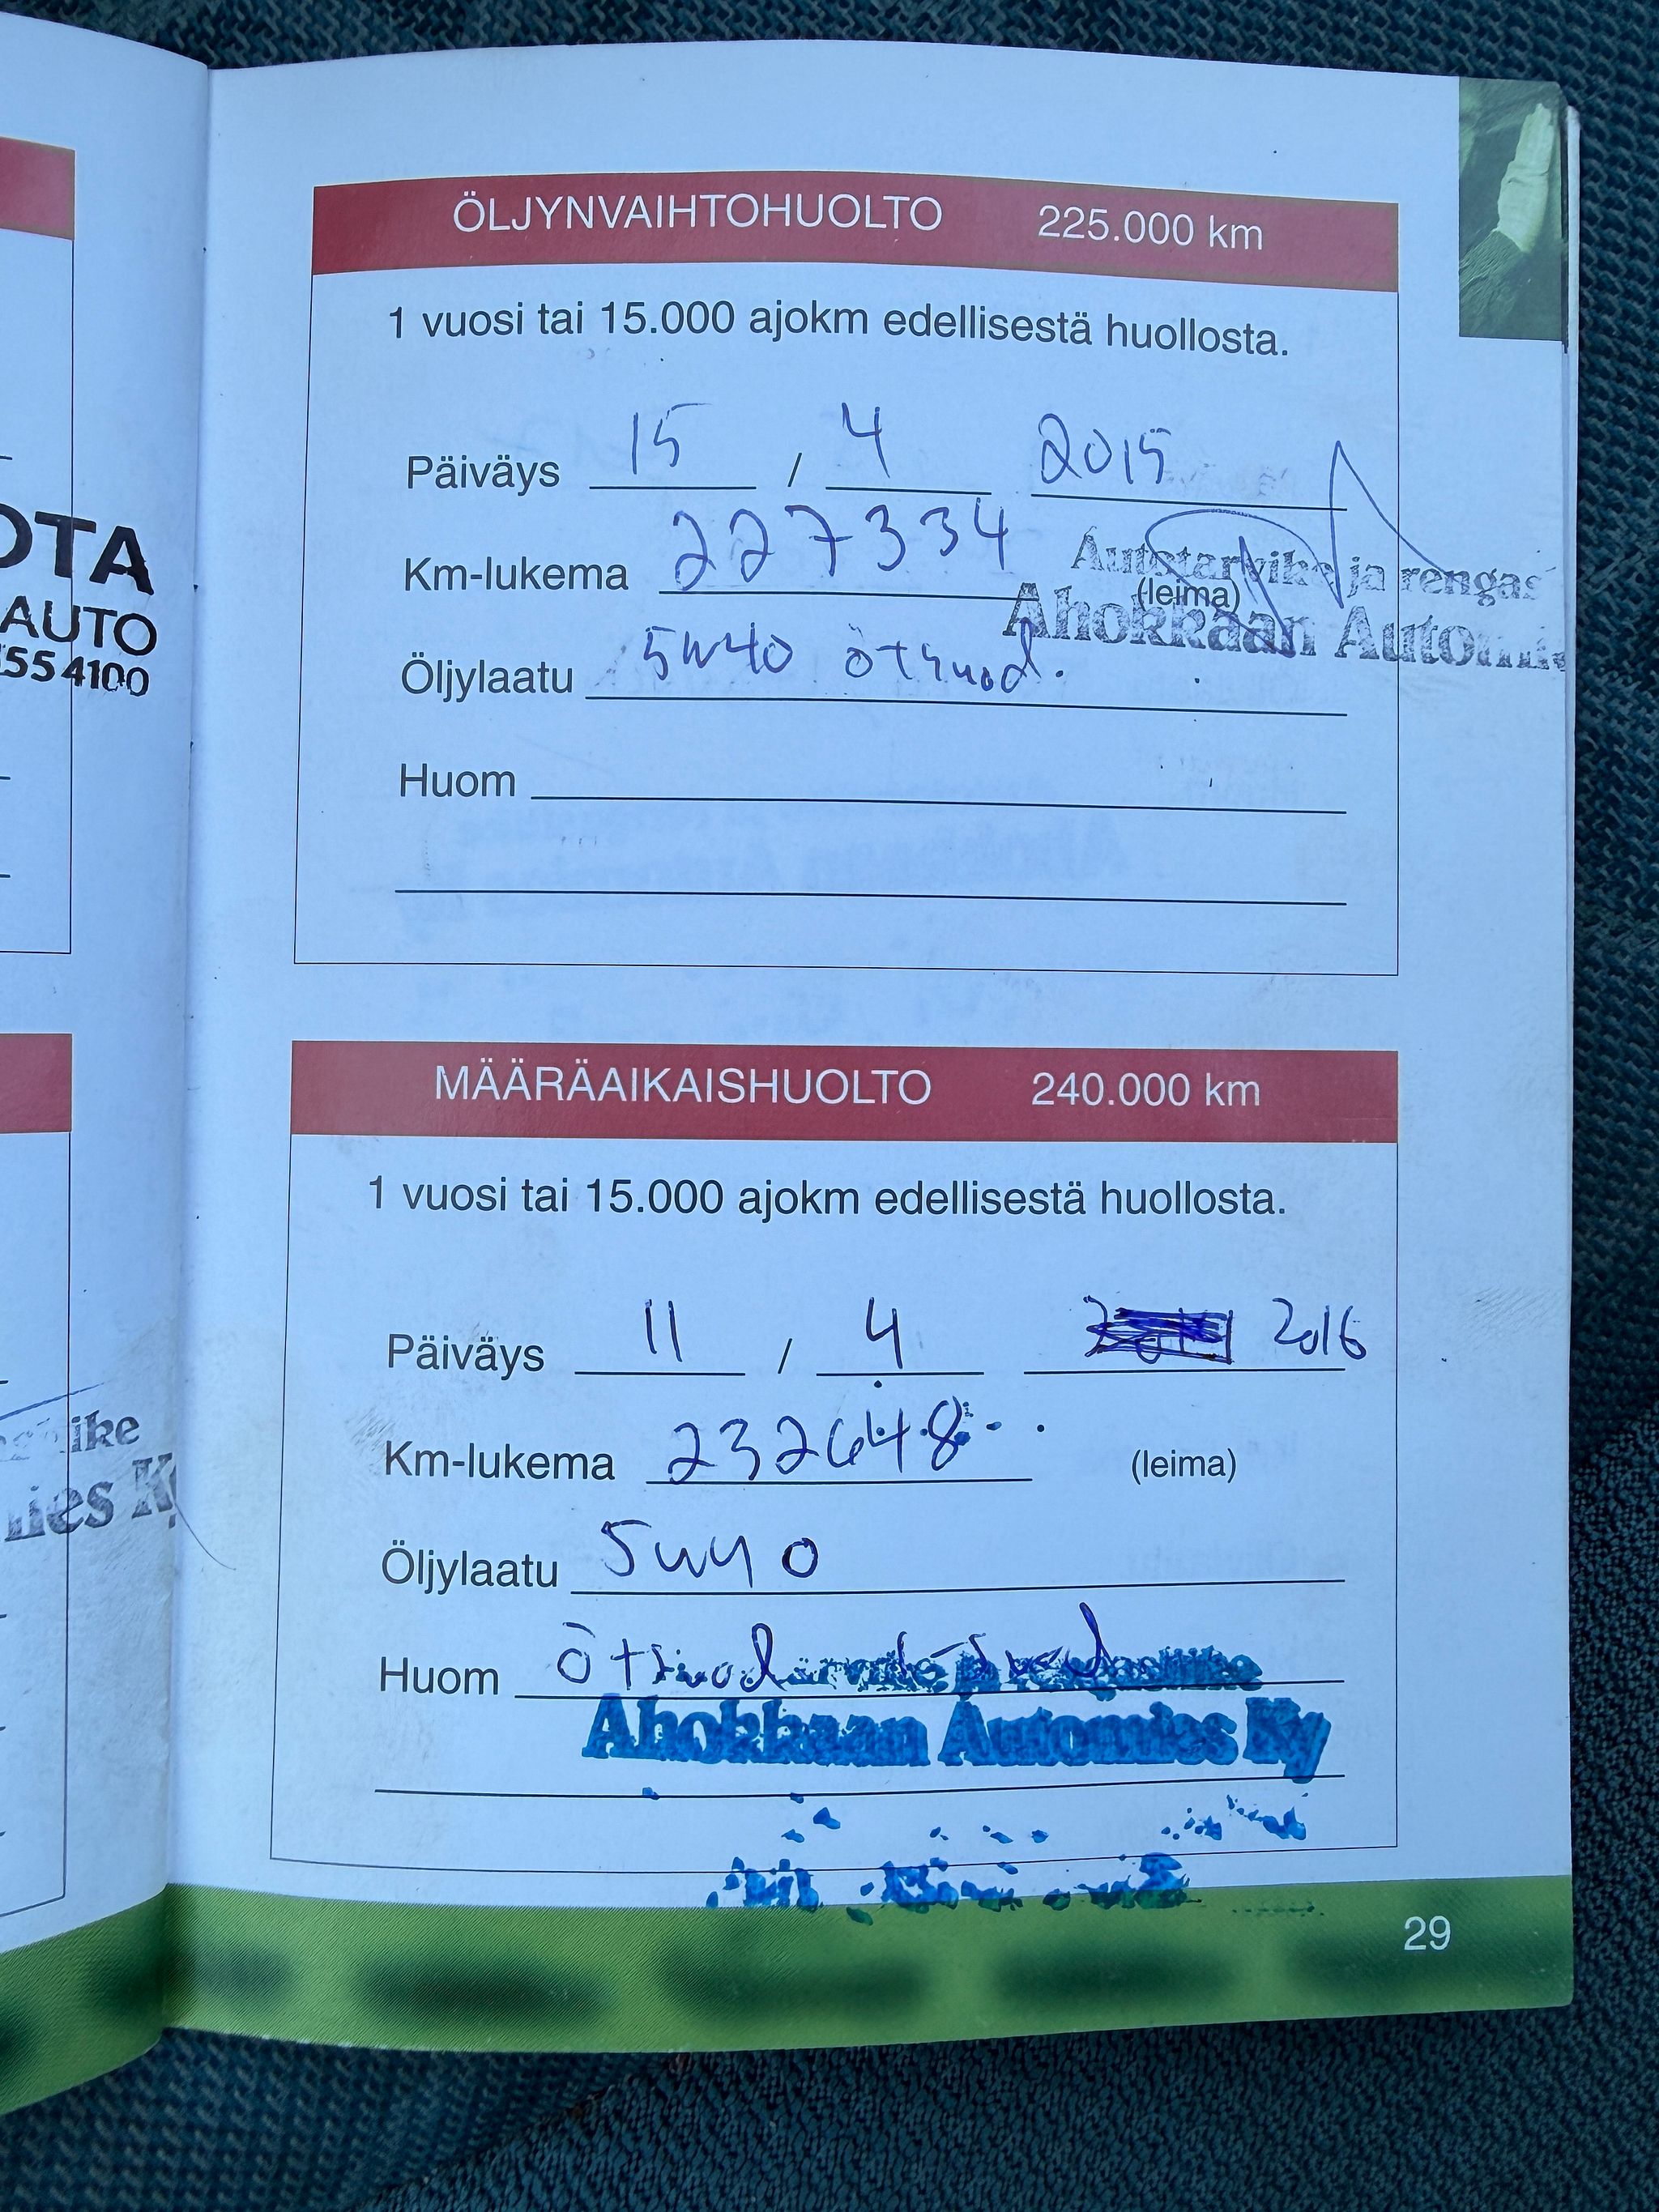 OTA
AUTO
554100
ike
ies Ky
ÖLJYNVAIHTOHUOLTO 225.000 km
1 vuosi tai 15.000 ajokm edellisestä huollosta.
Päiväys 15 / 4 2015
Km-lukema 227334
Autotarvike ja rengas
(leima)
Ahokkaan Automi
Öljylaatu 5W40 öt+suod.
Huom
MÄÄRÄAIKAISHUOLTO 240.000 km
1 vuosi tai 15.000 ajokm edellisestä huollosta.
Päiväys 11 / 4 2016
Km-lukema 232648 (leima)
Öljylaatu 5W40
Huom
Ahokkaan Automies Ky
29